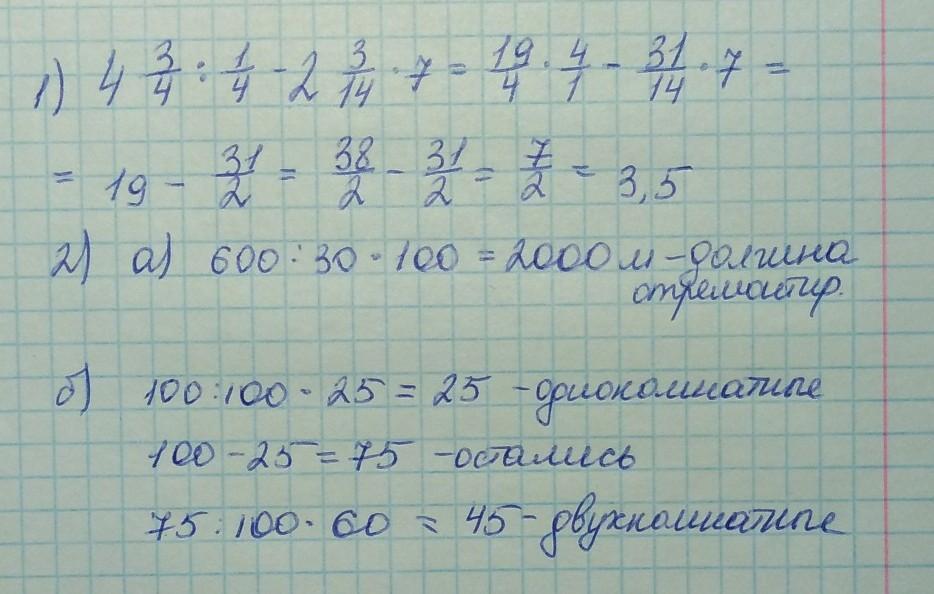 1) 4 3/4 : 1/4 - 2 3/14 · 7 = 19/4 · 4/1 - 31/14 · 7 =
= 19 - 31/2 = 38/2 - 31/2 = 7/2 = 3,5
2) а) 600 : 30 · 100 = 2000 м - долгина
отремонтир.
б) 100 : 100 · 25 = 25 - однокомнатные
100 - 25 = 75 - остались
75 : 100 · 60 = 45 - двухкомнатные